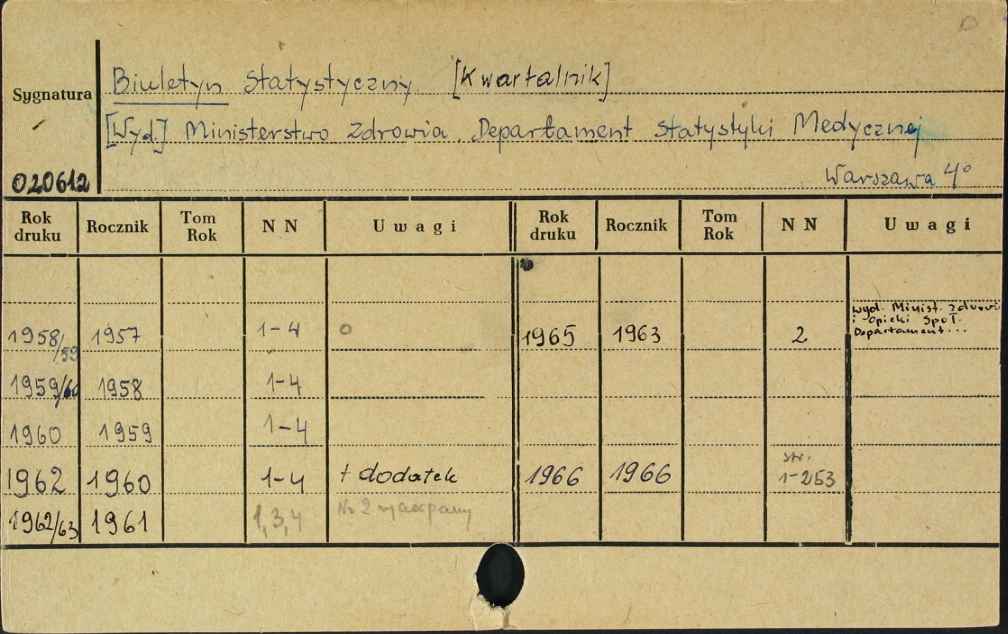 Biuletyn Statystyczny [Kwartalnik]
Sygnatura
[Wyd.] Ministerstwo Zdrowia. Departament Statystyki Medycznej
020612 Warszawa 4°
Rok druku Rocznik Tom Rok NN Uwagi Rok druku Rocznik Tom Rok NN Uwagi
wyd. Minist. Zdrowi
i Opieki Społ.
Departament...
1958/59 1957 1-4 o 1965 1963 2
1959/60 1958 1-4
1960 1959 1-4
str.
1962 1960 1-4 + dodatek 1966 1966 1-253
1962/63 1961 1,3,4 No 2